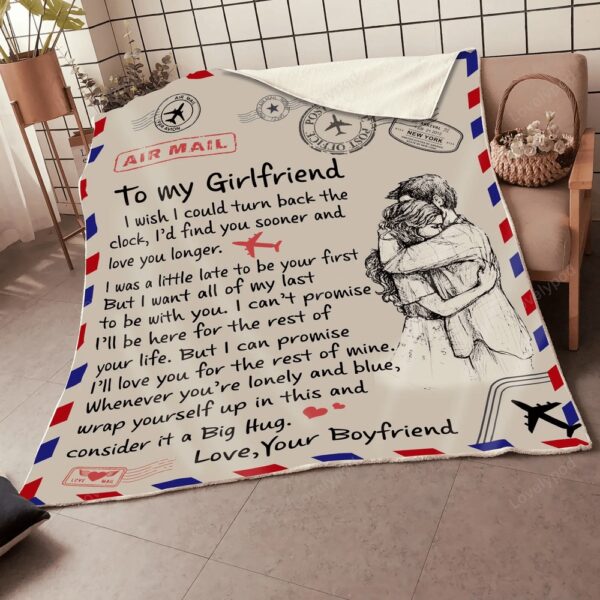 AIR MAIL
PAR AVION
POST OFFICE
NEW YORK
AIR MAIL
To my Girlfriend
I wish I could turn back the
clock, I'd find you sooner and
love you longer.
I was a little late to be your first
But I want all of my last
to be with you. I can't promise
I'll be here for the rest of
your life. But I can promise
I'll love you for the rest of mine.
Whenever you're lonely and blue,
wrap yourself up in this and
consider it a Big Hug.
Love, Your Boyfriend
LOVE MAIL